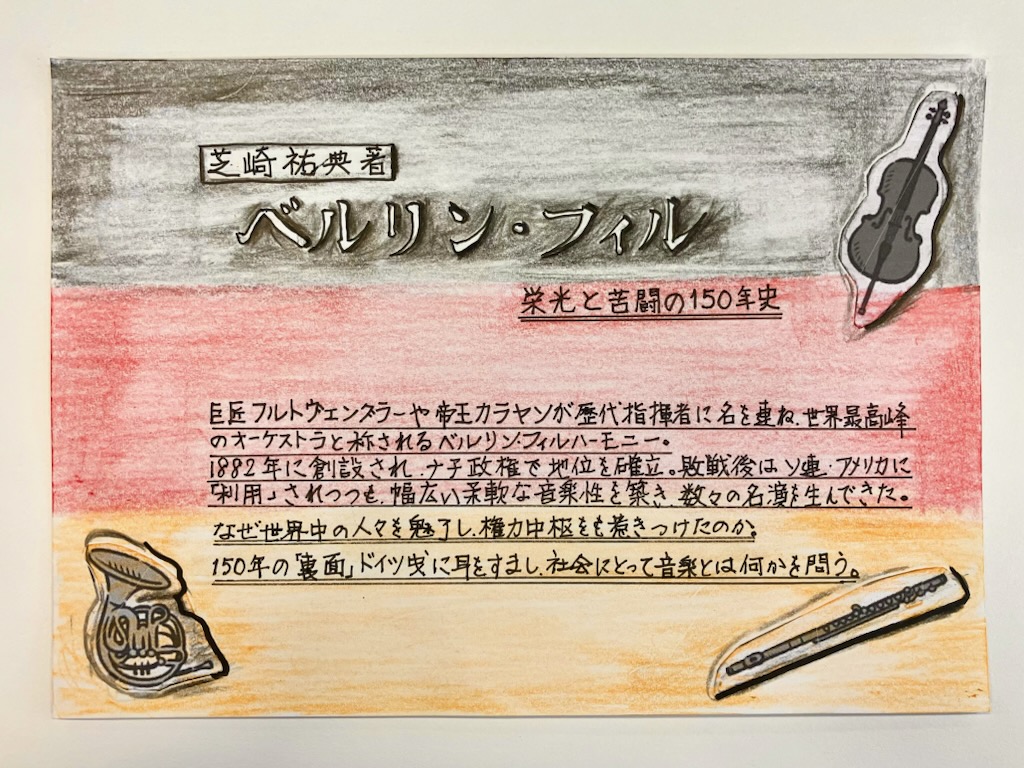 芝崎祐典 著
ベルリン・フィル
栄光と苦闘の150年史
巨匠フルトヴェングラーや帝王カラヤンが歴代指揮者に名を連ね、世界最高峰
のオーケストラと称されるベルリン・フィルハーモニー。
1882年に創設され、ナチ政権で地位を確立。敗戦後はソ連・アメリカに
「利用」されつつも、幅広い柔軟な音楽性を築き、数々の名演を生んできた。
なぜ世界中の人々を魅了し、権力中枢をも惹きつけたのか。
150年の「裏面」ドイツ史に耳をすまし、社会にとって音楽とは何かを問う。